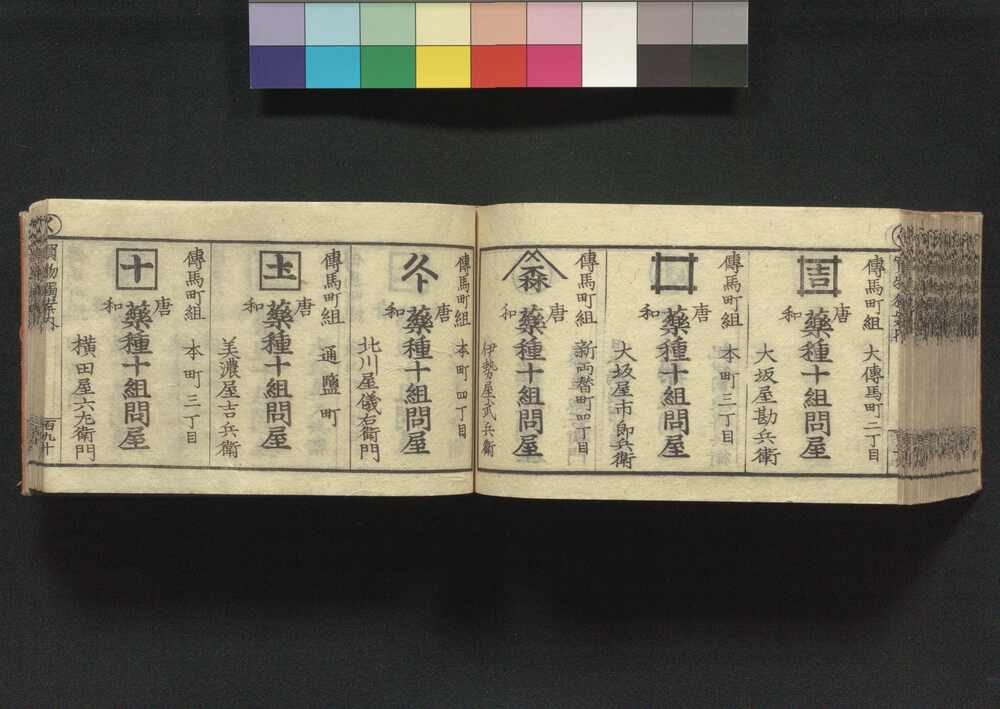 傳馬町組 大傳馬町二丁目
吉
唐和藥種十組問屋
大坂屋勘兵衛
傳馬町組 本町三丁目
唐和藥種十組問屋
大坂屋市郎兵衛
傳馬町組 新両替町四丁目
森
唐和藥種十組問屋
伊勢屋武兵衛
傳馬町組 本町四丁目
唐和藥種十組問屋
北川屋儀右衛門
傳馬町組 通鹽町
唐和藥種十組問屋
美濃屋吉兵衛
傳馬町組 本町三丁目
十
唐和藥種十組問屋
横田屋六左衛門
百九十